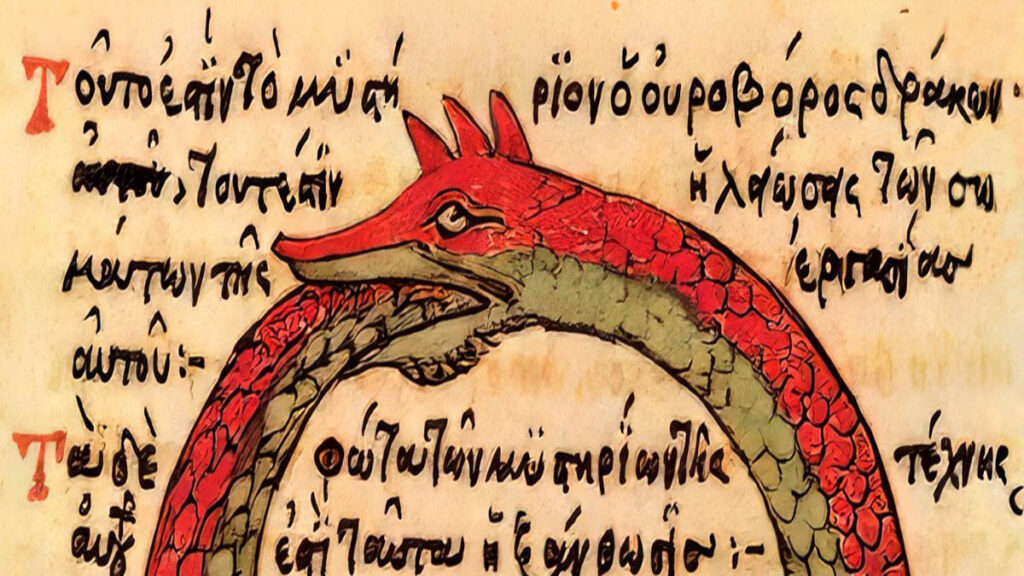 Τοῦτο ἐστὶν τὸ μϋστήρϊον ὁ οὐροβόρος δράκων·
τουτέστιν ἡ τῶν σω
μάτων τῆς ἐργασίαν
αὐτοῦ:-
Τὰ δὲ φῶτα τῶν μϋστηρίων τῆς τέχνης
ἐστὶ ἡ ξάνθωσις:-